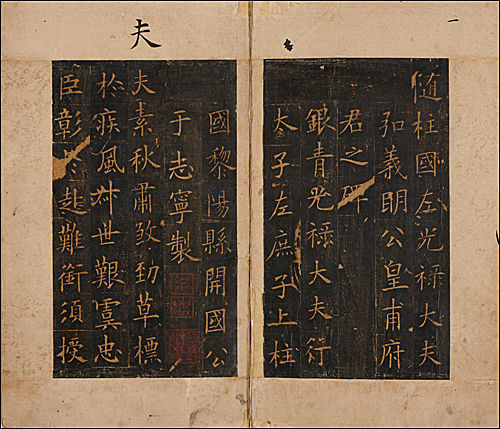 一
随柱國左光禄大夫
弘義明公皇甫府
君之碑
銀青光禄大夫行
太子左庶子上柱
夫
國黎陽縣開國公
于志寧製
夫素秋肅致勁草標
於疾風叔世艱虞忠
臣彰赴難銜須授